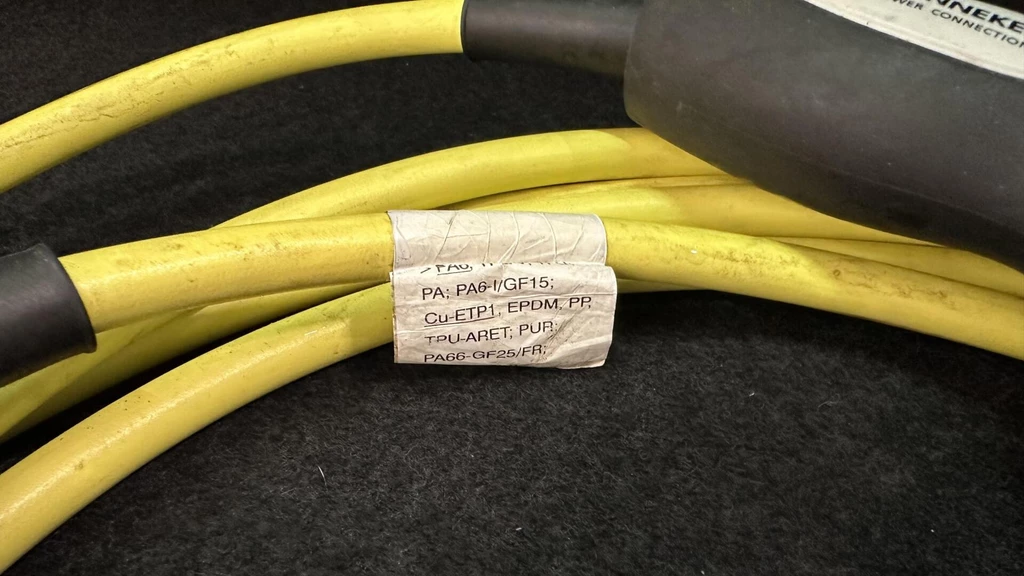 NNEKE
WER CONNECTION
>PA6,
PA; PA6-I/GF15;
Cu-ETP1, EPDM, PP,
TPU-ARET; PUR;
PA66-GF25/FR;